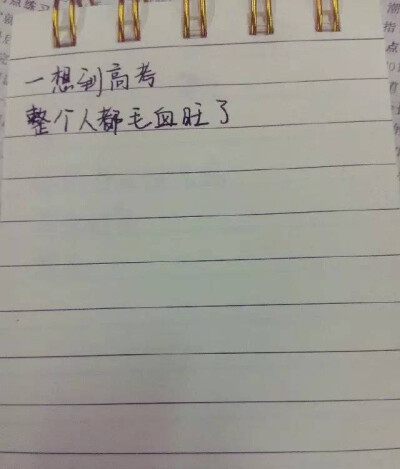 一想到高考
整个人都毛血旺了